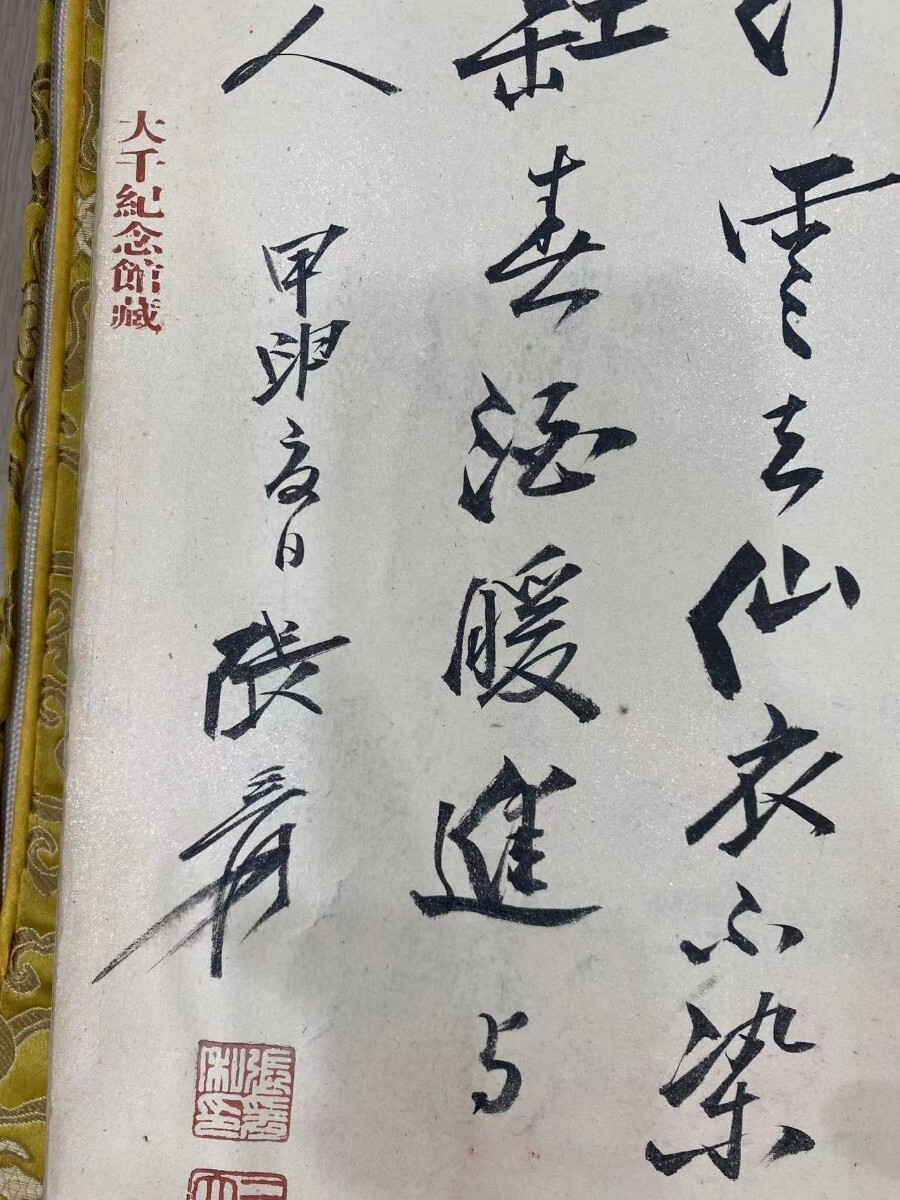 雲去仙衣不染
缸春酒暖進与
人
甲卯夏日張爰
大千紀念館藏
張爰私印